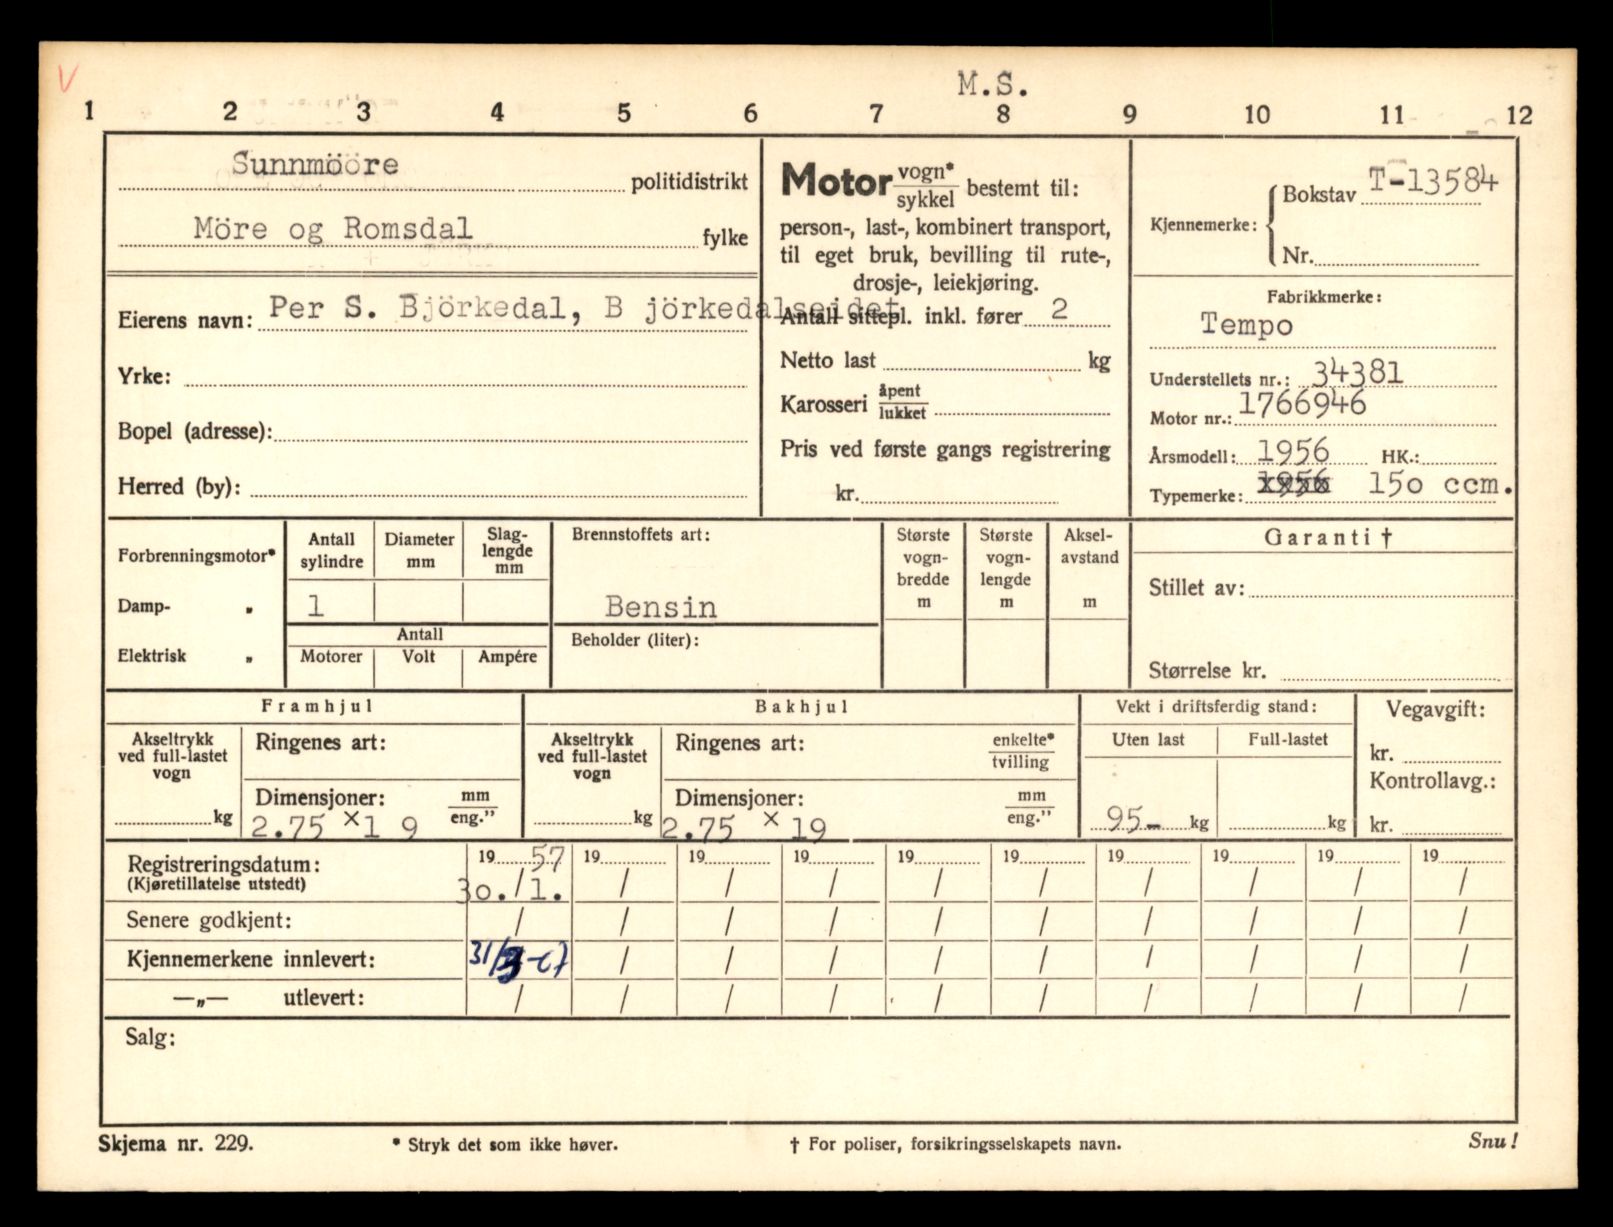 M.S.
1 2 3 4 5 6 7 8 9 10 11 12
Sunnmööre politidistrikt
Möre og Romsdal fylke
Eierens navn: Per S. Björkedal, B jörkedalseidet
Yrke:
Bopel (adresse):
Herred (by):
Motor vogn*
sykkel bestemt til:
person-, last-, kombinert transport,
til eget bruk, bevilling til rute-,
drosje-, leiekjøring.
Antall sittepl. inkl. fører 2
Netto last kg
Karosseri åpent
lukket
Pris ved første gangs registrering
kr.
Kjennemerke: Bokstav T-13584
Nr.
Fabrikkmerke:
Tempo
Understellets nr.: 34381
Motor nr.: 1766946
Årsmodell: 1956 HK.:
Typemerke: 1956 15o ccm.
Forbrenningsmotor*
Damp- „
Elektrisk „
Antall sylindre
Diameter mm
Slag-
lengde
mm
1
Antall
Motorer Volt Ampére
Brennstoffets art:
Bensin
Beholder (liter):
Største
vogn-
bredde
m
Største
vogn-
lengde
m
Aksel-
avstand
m
Garanti †
Stillet av:
Størrelse kr.
Framhjul
Akseltrykk
ved full-lastet
vogn
kg
Ringenes art:
Dimensjoner: mm
eng.”
2.75 x1 9
Bakhjul
Akseltrykk
ved full-lastet
vogn
kg
Ringenes art: enkelte*
tvilling
Dimensjoner: mm
eng.”
2.75 x 19
Vekt i driftsferdig stand:
Uten last Full-lastet
95- kg kg
Vegavgift:
kr.
Kontrollavg.:
kr.
Registreringsdatum: 19 57 19 19 19 19 19 19 19 19 19
(Kjøretillatelse utstedt) 3o./1. / / / / / / / / /
Senere godkjent: / / / / / / / / / /
Kjennemerkene innlevert: 31/ / / / / / / / / /
—„— utlevert: / / / / / / / / / /
Salg:
Skjema nr. 229. * Stryk det som ikke høver. † For poliser, forsikringsselskapets navn. Snu!